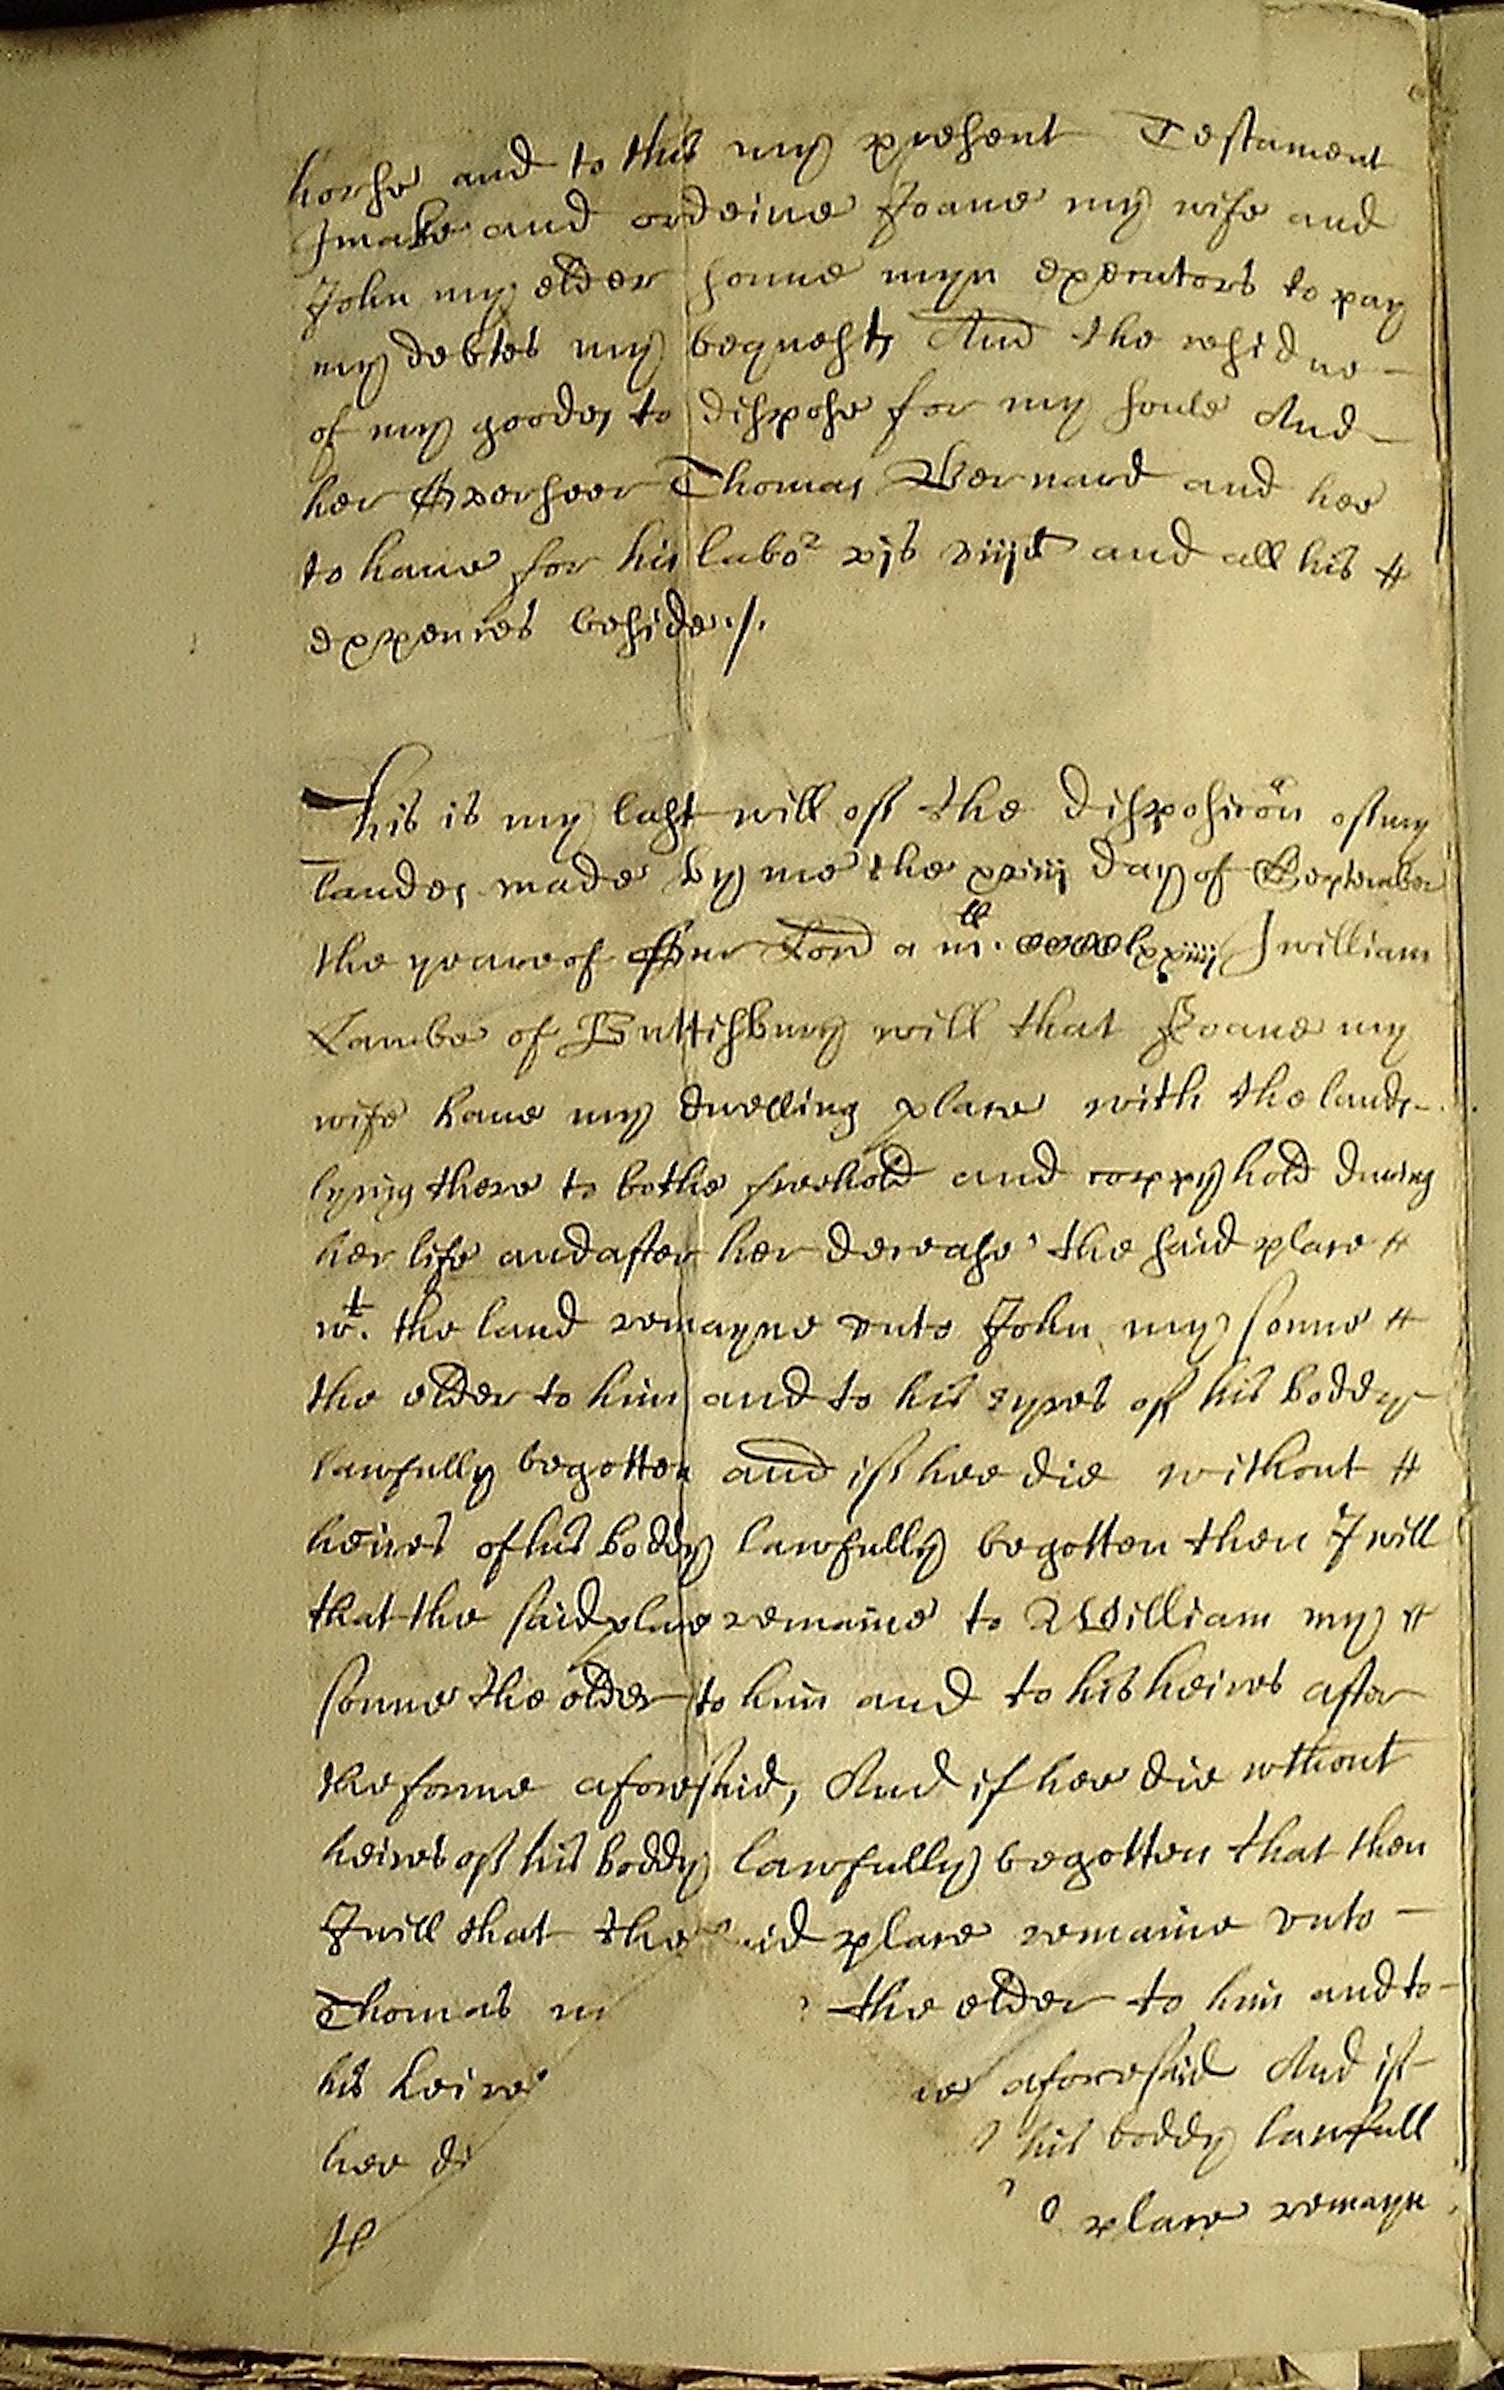 horse and to this my present Testament
I make and ordeine Joane my wife and
John my elder sonne myn executors to pay
my debtes my bequests And the residue -
of my goodes to dispose for my soule And -
her Overseer Thomas Bernard and hee
to haue for his labor vjs viijd and all his
expences beside ./.
This is my last will of the disposicon of my
landes made by me the xxiiij day of September
the yeare of our Lord a m. cccclxxiiij I william
Lambe of Guttisbury will that Joane my
wife haue my dwelling place with the landes -
lying there to bothe freehold and coppyhold during
her life and after her decease the said place
wt. the land remayne vnto John my sonne
the elder to him and to his eyres of his boddy
lawfully begotten and if hee die without
heires of his boddy lawfully begotten then I will
that the said place remaine to William my
sonne the elder to him and to his heires after
the forme aforesaid, And if hee die wthout
heires of his boddy lawfully begotten that then
I will that the said place remaine vnto -
Thomas m the elder to him and to -
his heires aforesaid And if -
hee di his boddy lawfull
place remayn